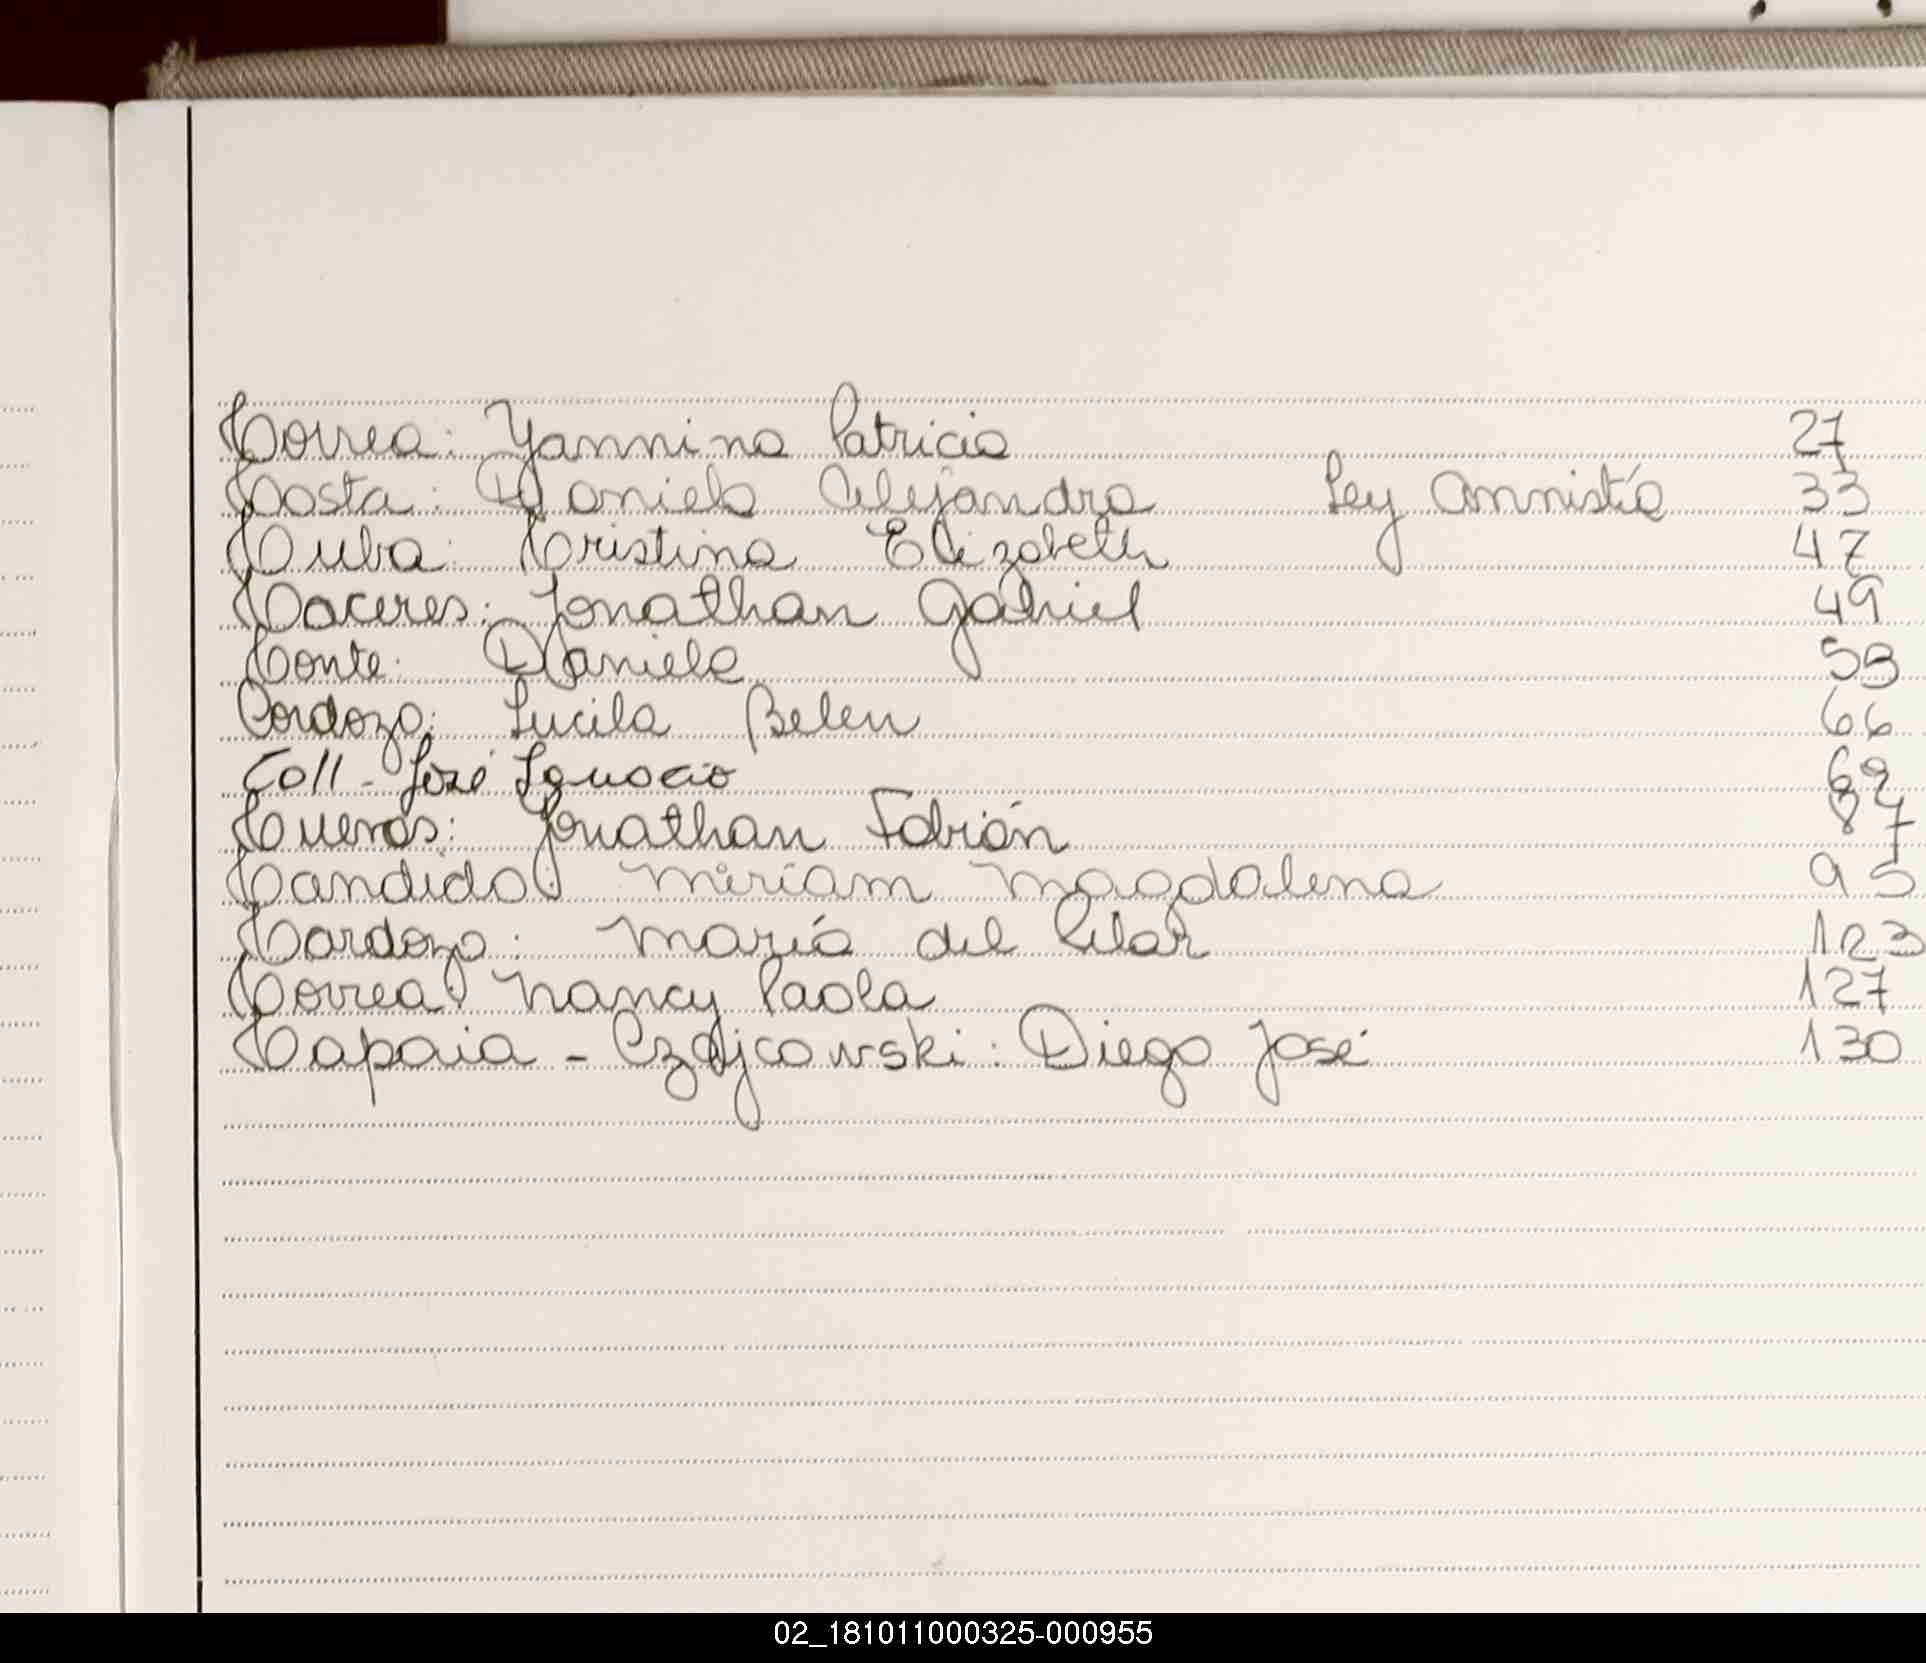 Correa: Yannina Patricia 27
Costa: Daniela Alejandra Ley Amnistía 33
Cuba: Cristina Elizabeth 47
Caceres: Jonathan Gabriel 49
Conte: Daniela 59
Cordozo: Lucila Belen 66
Coll - José Ignacio 69
Cuevas: Jonathan Fabián 87
Candido: Miriam Magdalena 95
Cardozo: María del Pilar 123
Correa: Nancy Paola 127
Capaia - Czajcowski: Diego José 130
02_181011000325-000955